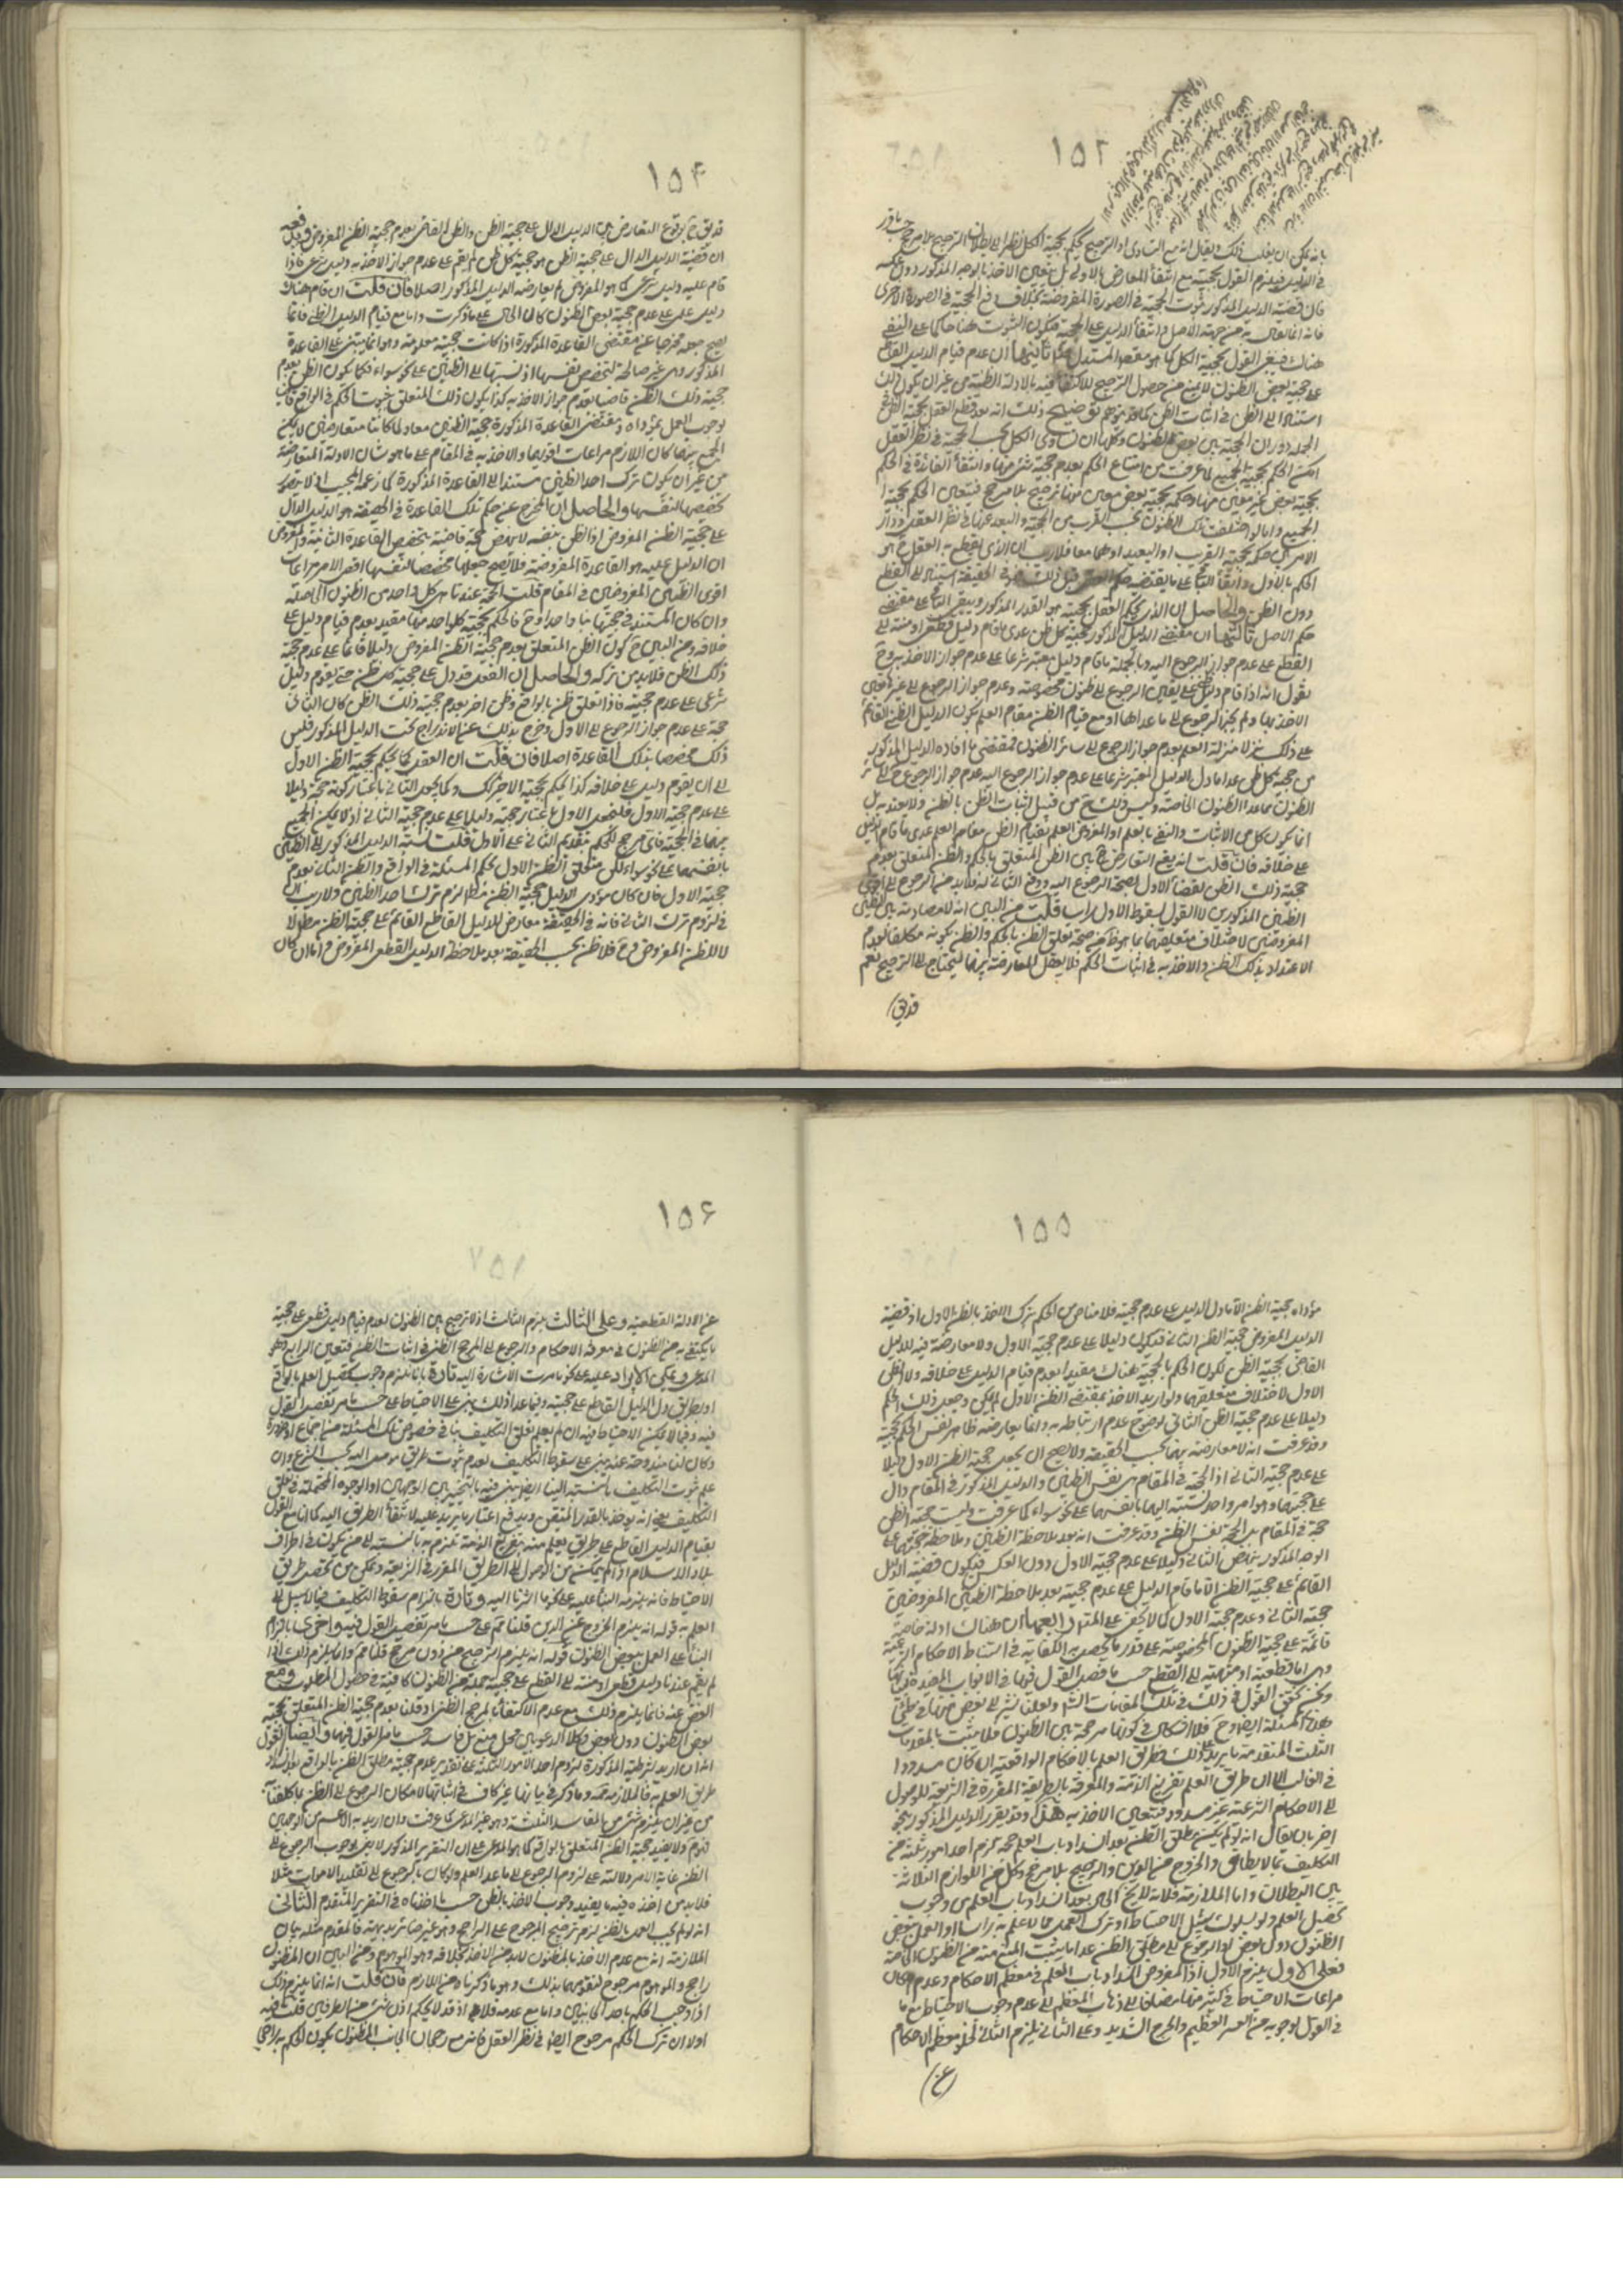 ١٥٣
بانه يمكن ان يقلب ذلك ويقال انه مع التساوى او الترجيح يحكم بحجية الكل نظرا الى بطلان الترجيح بلا مرجح
فان قضية الدليل المذكور ثبوت الحجية فى الصورة المفروضة بخلاف دفع الحجية فى الصورة الاخرى
فانه انما يقال به من جهة الاصل وانتفاء الدليل على الحجية فيكون الثبوت هنا حاكما على النفى
هناك فينبغى القول بحجية الكل كما هو مقصود المستدل ثانيها ان عدم قيام الدليل القاطع
على حجية بعض الظنون لا يمنع من حصول الترجيح للاكتفاء فيه بالادلة الظنية من غير ان يكون ذلك
استنادا الى الظن فى اثبات الظن كما قد يتوهم توضيح ذلك انه بعد قطع العقل بحجية الظن فى
الجملة ودوران الحجية بين بعض الظنون وكلها ان تساوى الكل بحسب الحجية فى نظر العقل
امكن الحكم بحجية الجميع لما عرفت من امتناع الحكم بعدم حجية شئ منها وانتفاء الفائدة فى الحكم
بحجية بعض غير معين منها وحكمه بحجية بعض معين منها ترجيح بلا مرجح فيتعين الحكم بحجية
الجميع واما لو اختلفت تلك الظنون بحسب القرب من الحجية والبعد عنها فى نظر العقل ودار
الامر بين حكمه بحجية القريب او البعيد او هما معا فلا ريب ان الذى يقطع به العقل ح هو
الحكم بالاول وابقاء الباقى على ما يقتضيه حكم العقل قبل ذلك فهو فى الحقيقة استناد الى القطع
دون الظن والحاصل ان الذى يحكم العقل بحجيته هو القدر المذكور ويبقى الباقى على مقتضى
حكم الاصل ثالثها ان مقتضى الدليل المذكور حجية كل ظن عدى ما قام دليل قطعى او منته الى
القطع على عدم جواز الرجوع اليه وبالجملة ما قام دليل معتبر شرعا على عدم جواز الاخذ به وح
نقول انه اذا قام دليل ظنى على تعين الرجوع الى ظنون مخصوصة وعدم جواز الرجوع الى غيرها تعين
الاخذ بها ولم يجز الرجوع الى ما عداها اذ مع قيام الظن مقام العلم يكون الدليل الظنى القائم
على ذلك بمنزلة العلم بعدم جواز الرجوع الى سائر الظنون فمقتضى ما افاده الدليل المذكور
من حجية كل ظن عدا ما دل الدليل المعتبر شرعا على عدم جواز الرجوع اليه عدم جواز الرجوع ح الى سائر
الظنون مما عدا الظنون الخاصة وليس ذلك ح من قبيل اثبات الظن بالظن ولا يعتد به بل
انما يكون كل من الاثبات والنفى بالعلم اذ المفروض العلم بقيام الظن مقام العلم عدى ما قام الدليل
على خلافه فان قلت انه يقع التعارض ح بين الظن المتعلق بالحكم والظن المتعلق بعدم
حجية ذلك الظن لقضاء الاول بصحة الرجوع اليه ودفع الثانى له فلا بد ح من الرجوع الى اقوى
الظنين المذكورين لا القول بسقوط الاول راسا قلت من البين انه لا مصادمة بين الظنين
المفروضين لاختلاف متعلقيهما بما هو ظاهر من صحة تعلق الظن بالحكم والظن بكونه مكلفا بعدم
الاعتداد بذلك الظن والاخذ به فى اثبات الحكم فلا يعقل المعارضة بينهما ليحتاج الى الترجيح نعم
قد يق
١٥۴
قد يق ح بوقوع التعارض بين الدليل الدال على حجية الظن والظن القاضى بعدم حجية الظن المفروض ويدفعه
ان قضية الدليل الدال على حجية الظن هو حجية كل ظن لم يقم على عدم جواز الاخذ به دليل شرعى فاذا
قام عليه دليل شرعى كما هو المفروض لم يعارضه الدليل المذكور اصلا فان قلت ان قام هناك
دليل علمى على عدم حجية بعض الظنون كان الحال على ما ذكرت واما مع قيام الدليل الظنى فانما
يصح جعله مخرجا عن مقتضى القاعدة المذكورة اذا كانت حجيته معلومة وهو انما يبتنى على القاعدة
المذكورة وهى غير صالحة لتخصيص نفسها اذ نسبتها الى الظنين على نحو سواء فكما يكون الظن بعدم
حجية ذلك الظن قاضيا بعدم جواز الاخذ به كذا يكون ذلك المتعلق بثبوت الحكم فى الواقع قاضيا
بوجوب العمل بمؤداه ومقتضى القاعدة المذكورة حجية الظنين معا ولما كانا متعارضين لا يمكن
الجمع بينهما كان اللازم مراعات اقويهما والاخذ به فى المقام على ما هو شان الادلة المتعارضة
من غير ان يكون ترك احد الظنين مستندا الى القاعدة المذكورة كما زعمه المجيب اذ لا يتصور
تخصيصها لنفسها والحاصل ان المخرج عن حكم تلك القاعدة فى الحقيقة هو الدليل الدال
على حجية الظن المفروض اذ الظن بنفسه لا ينهض حجة قاضية بتخصيص القاعدة الثابتة والمفروض
ان الدليل عليه هو القاعدة المفروضة فلا يصح جعلها مخصصا لنفسها اقصى الامر مراعات
اقوى الظنين المفروضين فى المقام قلت الحجة عندنا هى كل واحد من الظنون الحاصلة
وان كان المستند فى حجيتها شيئا واحدا وح فالحكم بحجية كل واحد منها مقيد بعدم قيام دليل على
خلافه ومن البين ح كون الظن المتعلق بعدم حجية الظن المفروض دليلا قائما على عدم حجية
ذلك الظن فلا بد من تركه والحاصل ان العقل قد دل على حجية كل ظن حتى يقوم دليل
شرعى على عدم حجيته فاذا تعلق ظن بالواقع وظن اخر بعدم حجية ذلك الظن كان الثانى
حجة على عدم جواز الرجوع الى الاول وخرج بذلك عن الاندراج تحت الدليل المذكور فليس
ذلك تخصيصا لتلك القاعدة اصلا فان قلت ان العقل كما يحكم بحجية الظن الاول
الى ان يقوم دليل على خلافه كذا يحكم بحجية الاخير كك وكما يجعل الثانى باعتبار كونه حجة دليلا
على عدم حجية الاول فليجعل الاول باعتبار حجيته دليلا على عدم حجية الثانى اذ لا يمكن الجمع
بينهما فى الحجية فاى مرجح للحكم بتقديم الثانى على الاول قلت نسبة الدليل المذكور الى الظنين
بانفسهما على نحو سواء لكن متعلق الظن الاول حكم المسئلة فى الواقع والظن الثانى بعدم
حجية الاول فان كان مؤدى الدليل حجية الظن مطلقا لزم ترك احد الظنين ولا ريب اذن
فى لزوم ترك الثانى فانه فى الحقيقة معارض للدليل القاطع القائم على حجية الظن مطلقا لا
للظن المفروض وح فلا ظن بحسب الحقيقة بعد ملاحظة الدليل القطعى المفروض واما ان كان
١٥٥
مؤداه حجية الظن الا ما دل الدليل على عدم حجيته فلا مناص من الحكم بترك الاخذ بالظن الاول اذ قضية
الدليل المفروض حجية الظن الثانى فيكون دليلا على عدم حجية الاول ولا معارضة فيه للدليل
القاضى بحجية الظن لكون الحكم بالحجية هناك مقيدا بعدم قيام الدليل على خلافه ولا للظن
الاول لاختلاف متعلقيهما ولو اريد الاخذ بمقتضى الظن الاول لم يمكن جعل ذلك الحكم
دليلا على عدم حجية الظن الثانى لوضوح عدم ارتباطه به وانما يعارضه ظاهر نفس الحكم بحجيته
وقد عرفت انه لا معارضة بينهما بحسب الحقيقة ولا يصح ان يجعل حجية الظن الاول دليلا
على عدم حجية الثانى اذ الحجة فى المقام هى نفس الظنين والدليل المذكور فى المقام دال
على حجيتهما وهو امر واحد نسبته اليهما بانفسهما على نحو سواء كما عرفت وليست حجية الظن
حجة فى المقام بل الحجة نفس الظن وقد عرفت انه بعد ملاحظة الظنين وملاحظة حجيتهما على
الوجه المذكور ينهض الثانى دليلا على عدم حجية الاول دون العكس فيكون قضية الدليل
القائم على حجية الظن الا ما قام الدليل على عدم حجيته بعد ملاحظة الظنين المفروضين
حجية الثانى وعدم حجية الاول كما لا يخفى على المتدبر رابعها ان هناك ادلة خاصة
قائمة على حجية الظنون المخصوصة على قدر ما يحصل به الكفاية فى استنباط الاحكام الشرعية
وهى اما قطعية او منتهية الى القطع حسب ما فصل القول فيها فى الابواب المعدة لبيانها
ونحن نحقق القول فى ذلك فى تلك المقامات انشا ولعلنا نشير الى بعض منها فى طى
هذه المسئلة ايضا وح فلا اشكال فى كونها مرجحة بين الظنون فلا يثبت بالمقدمات
الثلث المتقدمة ما يزيد على ذلك فطريق العلم بالاحكام الواقعية ان كان مسدودا
فى الغالب الا ان طريق العلم بتفريغ الذمة والمعرفة بالطريقة المقررة فى الشريعة للوصول
الى الاحكام الشرعية غير مسدود فيتعين الاخذ به هذا وقد يقرر الدليل المذكور بنحو
اخر بان يقال انه لو لم يكن مطلق الظن بعد انسداد باب العلم حجة لزم احد امور ثلثة من
التكليف بما لا يطاق والخروج عن الدين والترجيح بلا مرجح وكل من اللوازم الثلاثة
بين البطلان واما الملازمة فلانه لا يخ الحال بعد انسداد باب العلم من وجوب
تحصيل العلم ولو بسلوك سبيل الاحتياط او ترك العمل بما لا علم به راسا او العمل ببعض
الظنون دون بعض او الرجوع الى مطلق الظن عدا ما يثبت المنع منه من الظنون الخاصة
فعلى الاول يلزم الاول اذ المفروض انسداد باب العلم فى معظم الاحكام وعدم امكان
مراعات الاحتياط فى كثير منها مضافا الى ذهاب المعظم الى عدم وجوب الاحتياط مع ما
فى القول بوجوبه من العسر العظيم والحرج الشديد وعلى الثانى يلزم الثانى لخلو معظم الاحكام
عن
١٥۶
عن الادلة القطعية وعلى الثالث يلزم الثالث اذ لا ترجيح بين الظنون لعدم قيام دليل قطعى على حجية
ما يكتفى به من الظنون فى معرفة الاحكام والرجوع الى المرجح الظنى فى اثبات الظن فتعين الرابع وهو
المدعى ويمكن الايراد عليه على نحو ما مرت الاشارة اليه تارة بانا نلتزم وجوب تحصيل العلم بالواقع
او بطريق دل الدليل القاطع على حجيته وفيما عدا ذلك يبنى على الاحتياط على حسب ما مر تفصيل القول
فيه وفيما لا يمكن الاحتياط فيه ان لم يعلم تعلق التكليف بنا فى خصوص تلك المسئلة من اجماع او ضرورة
وكان لنا مندوحة عنه يبنى على سقوط التكليف لعدم ثبوت طريق موصل اليه بحسب الشرع وان
علم ثبوت التكليف بالنسبة الينا ايضا يبنى فيه بالتخيير بين الوجهين او الوجوه المحتملة فى تعلق
التكليف يعنى انه يؤخذ بالقدر المتيقن ويدفع اعتبار ما يزيد عليه لانتفاء الطريق اليه كما انا مع القول
بقيام الدليل القاطع على طريق يعلم منه بتفريغ الذمة نلتزم به بالنسبة الى من يكون فى اطراف
بلاد الاسلام اذا لم يتمكن من الوصول الى الطريق المقرر فى الشريعة وتمكن من تحصيل طريق
الاحتياط فانه يلزمه البناء عليه على نحو ما اشرنا اليه وتارة بالتزام سقوط التكليف فيما لا سبيل الى
العلم به قوله انه يلزم الخروج عن الدين قلنا مم على حسب ما مر تفصيل القول فيه واخرى بالتزام
البناء على العمل ببعض الظنون قوله انه يلزم الترجيح من دون مرجح قلنا مم وانما يلزم ذلك اذا
لم يقم عندنا دليل قطعى او منته الى القطع على حجية جملة من الظنون كافية فى حصول المطلوب ومع
الغض عنه فانما يلزم ذلك مع عدم الاكتفاء بالمرجح الظنى او قلنا بعدم حجية الظن المتعلق بحجية
بعض الظنون دون بعض وكلا الدعويين محل منع بل فاسد حسب ما مر القول فيهما وايضا نقول
انه ان اريد بالشرطية المذكورة لزوم احد الامور الثلثة على تقدير عدم حجية مطلق الظن بالواقع بعد انسداد
طريق العلم به فالملازمة مم وما ذكر فى بيانها غير كاف فى اثباتها لامكان الرجوع الى الظن بما كلفنا به
من غير ان يلزم شئ من المفاسد الثلثة وهو غير المدعى كما عرفت وان اريد به الاعم من الوجهين
فمسلم ولا يفيد حجية الظن المتعلق بالواقع كما هو المدعى على ان التقرير المذكور لا يفى بوجوب الرجوع الى
الظن غاية الامر دلالته على لزوم الرجوع الى ما عدا العلم ولو كان بالرجوع الى تقليد الاموات مثلا
فلا بد من اخذ ما فيه ما يفيد وجوب الاخذ بالظن حسب ما اخذناه فى التقرير المتقدم الثانى
انه لو لم يجب العمل بالظن لزم ترجيح المرجوح على الراجح وهو غير جائز بديهة فالمقدم مثله بيان
الملازمة انه مع عدم الاخذ بالمظنون لا بد من الاخذ بخلافه وهو الموهوم ومن البين ان المظنون
راجح والموهوم مرجوح لتقومهما بذلك وهو ما ذكرنا من اللازم فان قلت انه انما يلزم ذلك
اذا وجب الحكم باحد الجانبين واما مع عدمه فلا اذ قد لا يحكم اذن بشئ من الطرفين قلت فيه
اولا ان ترك الحكم مرجوح ايضا فى نظر العقل فانه مع رجحان الجانب المظنون يكون الحكم به راجحا